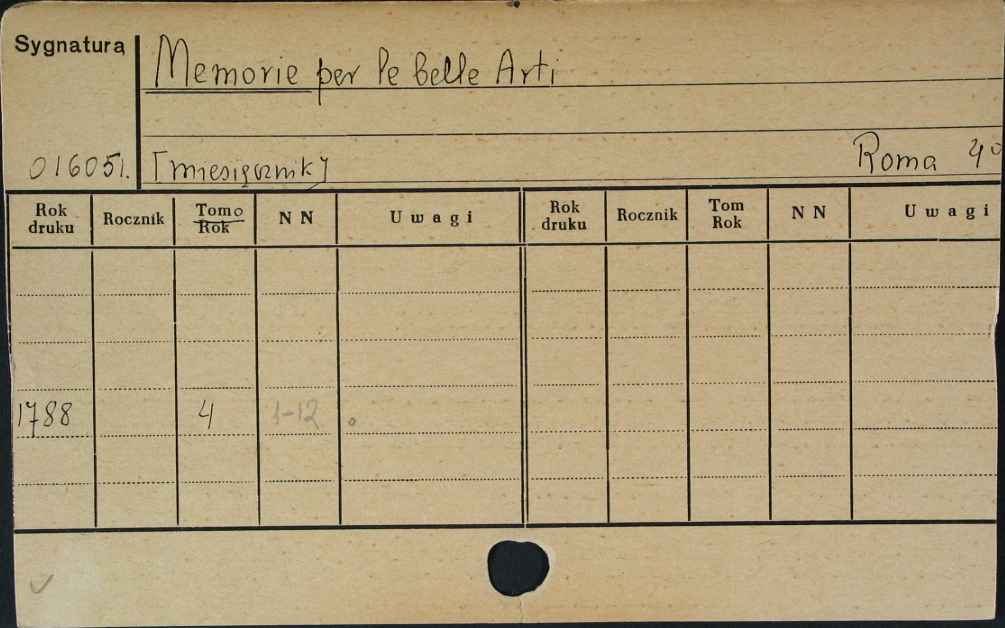 Sygnatura
Memorie per le belle Arti
016051. [miesięcznik] Roma 4°
Rok druku Rocznik Tomo Rok NN Uwagi Rok druku Rocznik Tom Rok NN Uwagi
1788 4 1-12